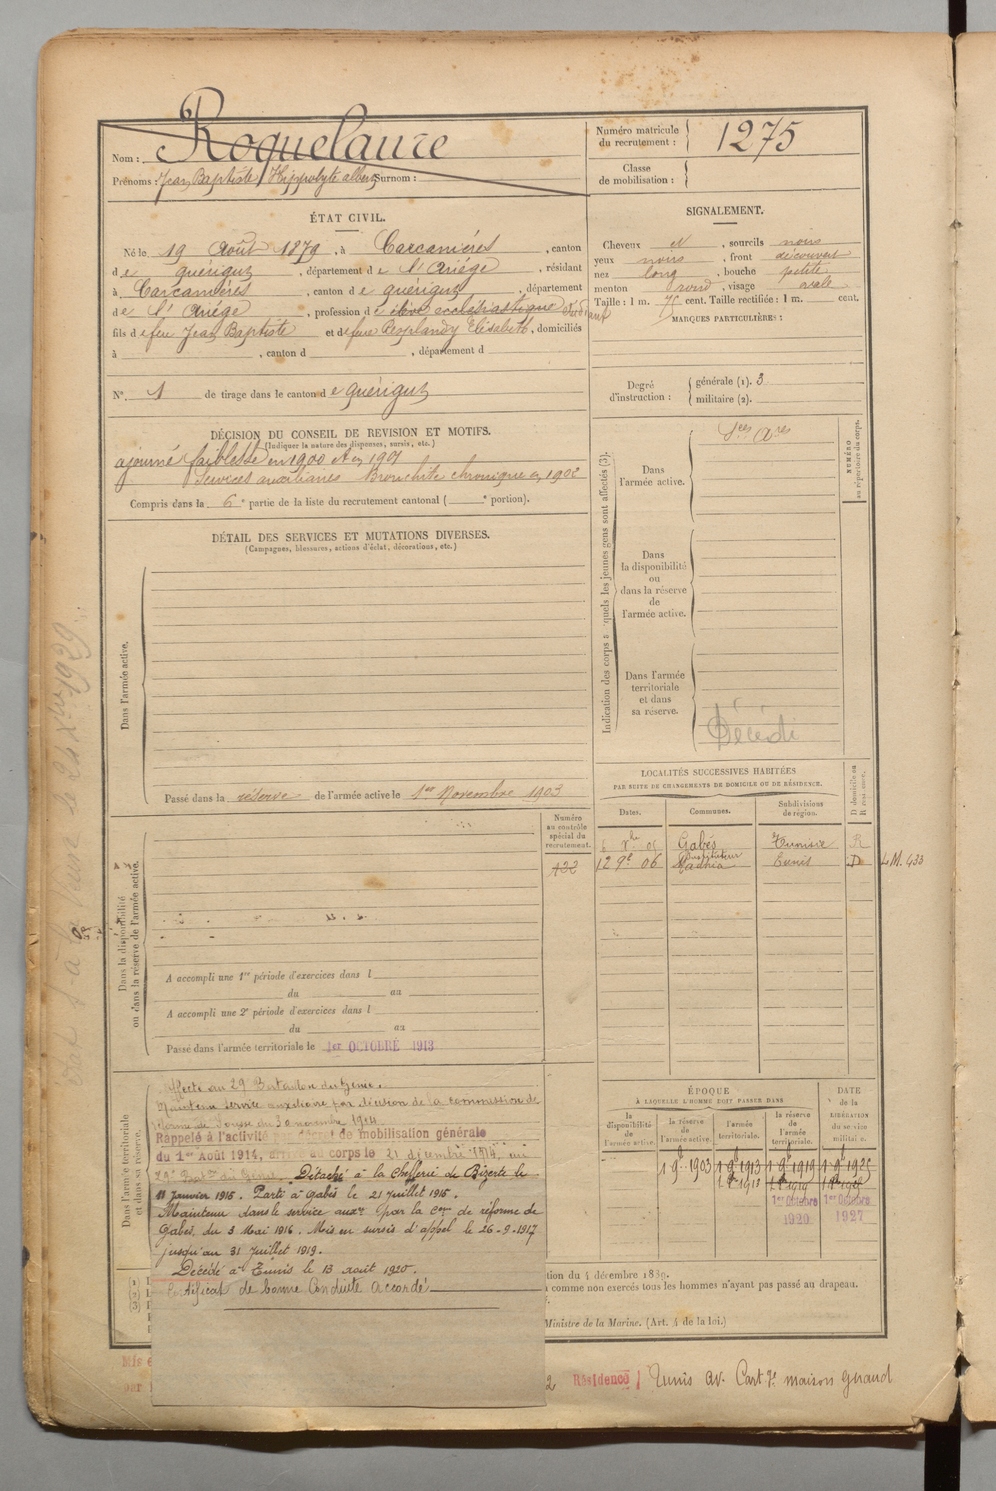 Nom : Roquelaure
Prénoms : Jean Baptiste Hippolyte albert Surnom :
Numéro matricule du recrutement : 1275
Classe de mobilisation :
ÉTAT CIVIL.
Né le 19 Août 1879, à Carcaniéres, canton
de quérigut, département de l'Ariége, résidant
à Carcaniéres, canton de quérigut, département
de l'Ariége, profession d'élève ecclésiastique Etudiant
fils de feu Jean Baptiste et de feue Elisabeth, domiciliés
à , canton d , département d
N° 1 de tirage dans le canton de quérigut
SIGNALEMENT.
Cheveux N , sourcils noirs
yeux noirs , front découvert
nez long , bouche petite
menton rond , visage ovale
Taille : 1 m. 75 cent. Taille rectifiée : 1 m. cent.
MARQUES PARTICULIÈRES :
Degré d'instruction : générale (1). 3
militaire (2).
DÉCISION DU CONSEIL DE REVISION ET MOTIFS.
(Indiquer la nature des dispenses, sursis, etc.)
ajourné faiblesse en 1900 et en 1901
Services auxiliaires Bronchite chronique en 1902
Compris dans la 6e partie de la liste du recrutement cantonal ( e portion).
DÉTAIL DES SERVICES ET MUTATIONS DIVERSES.
(Campagnes, blessures, actions d'éclat, décorations, etc.)
Dans l'armée active.
Passé dans la réserve de l'armée active le 1er Novembre 1903
Indication des corps auxquels les jeunes gens sont affectés (3).
NUMÉRO au répertoire du corps.
Dans l'armée active.
Sces Ares
Dans la disponibilité ou dans la réserve de l'armée active.
Dans l'armée territoriale et dans sa réserve.
Décédé
LOCALITÉS SUCCESSIVES HABITÉES
PAR SUITE DE CHANGEMENTS DE DOMICILE OU DE RÉSIDENCE.
Dates. Communes. Subdivisions de région. D domicile ou R résidence.
Gabès Tunisie R
12 9e 06 Instituteur Mahdia Tunis D
Numéro au contrôle spécial du recrutement.
432
L.M. 433
Dans la disponibilité ou dans la réserve de l'armée active.
A accompli une 1re période d'exercices dans l
du au
A accompli une 2e période d'exercices dans l
du au
Passé dans l'armée territoriale le 1er OCTOBRE 1913
Dans l'armée territoriale et dans sa réserve.
Affecté au 29e Bataillon du Génie.
Maintenu service auxiliaire par décision de la commission de
réforme de Sousse du 30 novembre 1914
Rappelé à l'activité par décret de mobilisation générale
du 1er Août 1914, arrivé au corps le 21 décembre 1914, au
29e Baton du Génie. Détaché à la Chefferie de Bizerte le
11 Janvier 1915. Parti à Gabès le 21 Juillet 1915.
Maintenu dans le service auxre par la Con de réforme de
Gabès, du 3 Mai 1916. Mis en sursis d'appel le 26-9-1917
jusqu'au 31 Juillet 1919.
Décédé à Tunis le 13 août 1920.
Certificat de bonne Conduite Accordé
ÉPOQUE
À LAQUELLE L'HOMME DOIT PASSER DANS
la disponibilité de l'armée active. la réserve de l'armée active. l'armée territoriale. la réserve de l'armée territoriale.
DATE de la LIBÉRATION du service militaire.
1 9e 1903 1 9e 1913 1 9e 1919 1 9e 1925
1er Octobre 1920 1er Octobre 1927
tion du 4 décembre 1889.
comme non exercés tous les hommes n'ayant pas passé au drapeau.
Ministre de la Marine. (Art. 4 de la loi.)
Résidence Tunis av. Cart maison Guraud